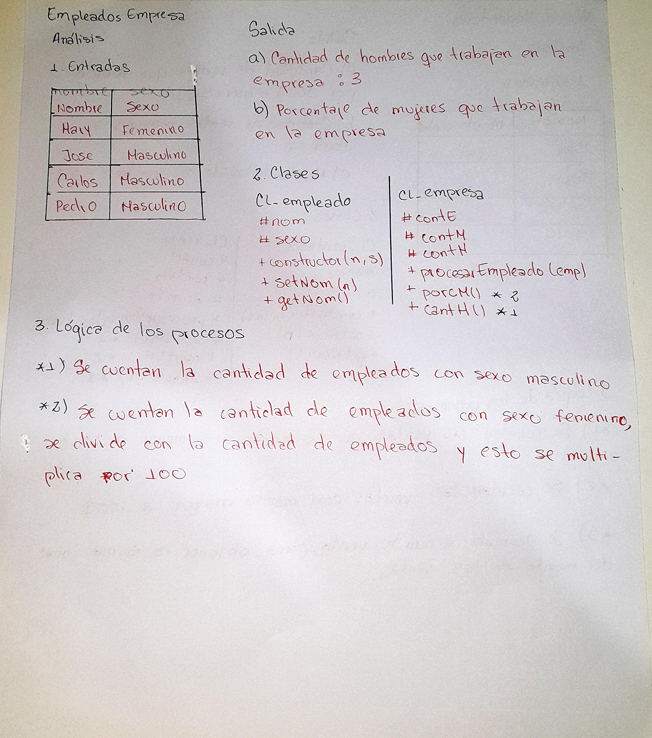 Empleados Empresa
Análisis
1. Entradas
nombre sexo
Nombre Sexo
Mary Femenino
Jose Masculino
Carlos Masculino
Pedro Masculino
Salida
a) Cantidad de hombres que trabajan en la
empresa : 3
b) Porcentaje de mujeres que trabajan
en la empresa
2. Clases
CL_empleado
#nom
# sexo
+constructor(n,s)
+ setNom(n)
+ getNom()
CL_empresa
#contE
# contM
# contH
+ procesarEmpleado(emp)
+ porcM() *2
+ cantH() *1
3. Lógica de los procesos
*1) Se cuentan la cantidad de empleados con sexo masculino
*2) se cuentan la cantidad de empleados con sexo femenino,
se divide con la cantidad de empleados y esto se multi-
plica por 100